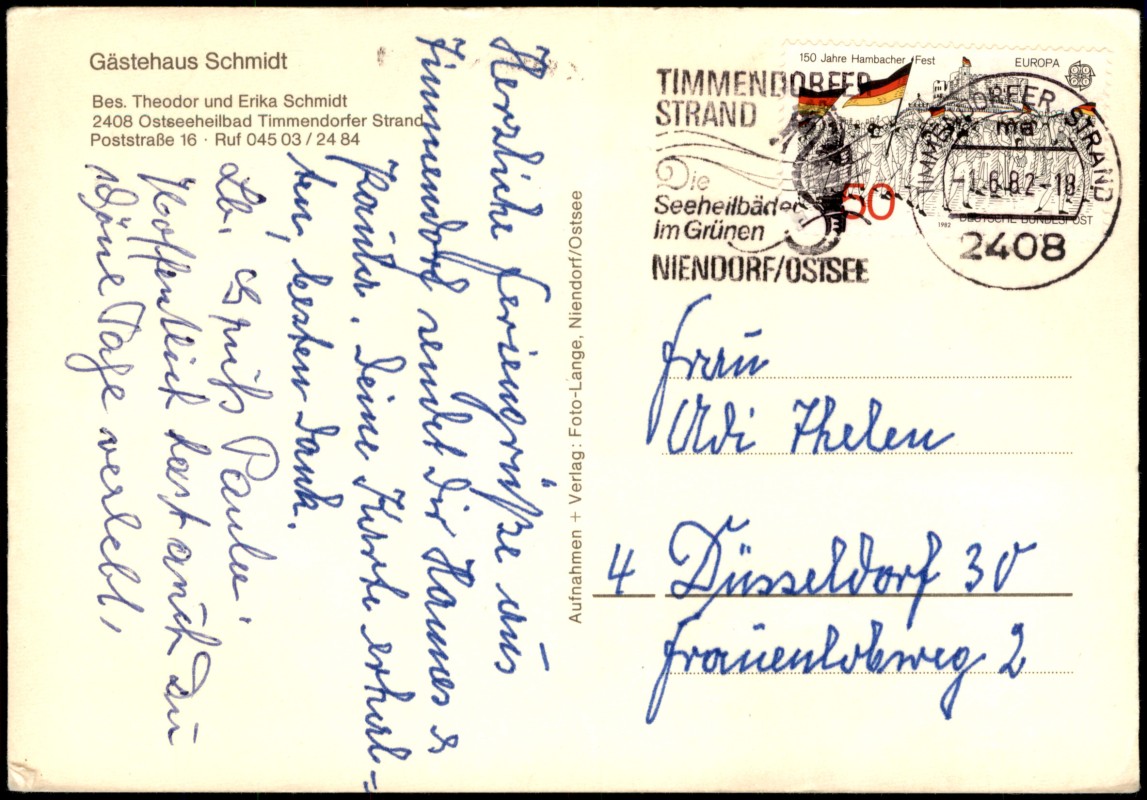 Gästehaus Schmidt
Bes. Theodor und Erika Schmidt
2408 Ostseeheilbad Timmendorfer Strand
Poststraße 16 · Ruf 045 03 / 24 84
Herzliche Feriengrüße aus
Timmendorf sendet Dir Hannes &
Deine Karte erhal-
ten, besten Dank.
Lb. Gruß Paula
Hoffentlich hast auch Du
schöne Tage verlebt,
Aufnahmen + Verlag: Foto-Lange, Niendorf/Ostsee
TIMMENDORFER
STRAND
Die
Seeheilbäder
im Grünen
NIENDORF/OSTSEE
150 Jahre Hambacher Fest
EUROPA
50
1982
DEUTSCHE BUNDESPOST
TIMMENDORFER STRAND
ma
-1.6.82-18
2408
Frau
Adi Thelen
4 Düsseldorf 30
Frauenlobweg 2